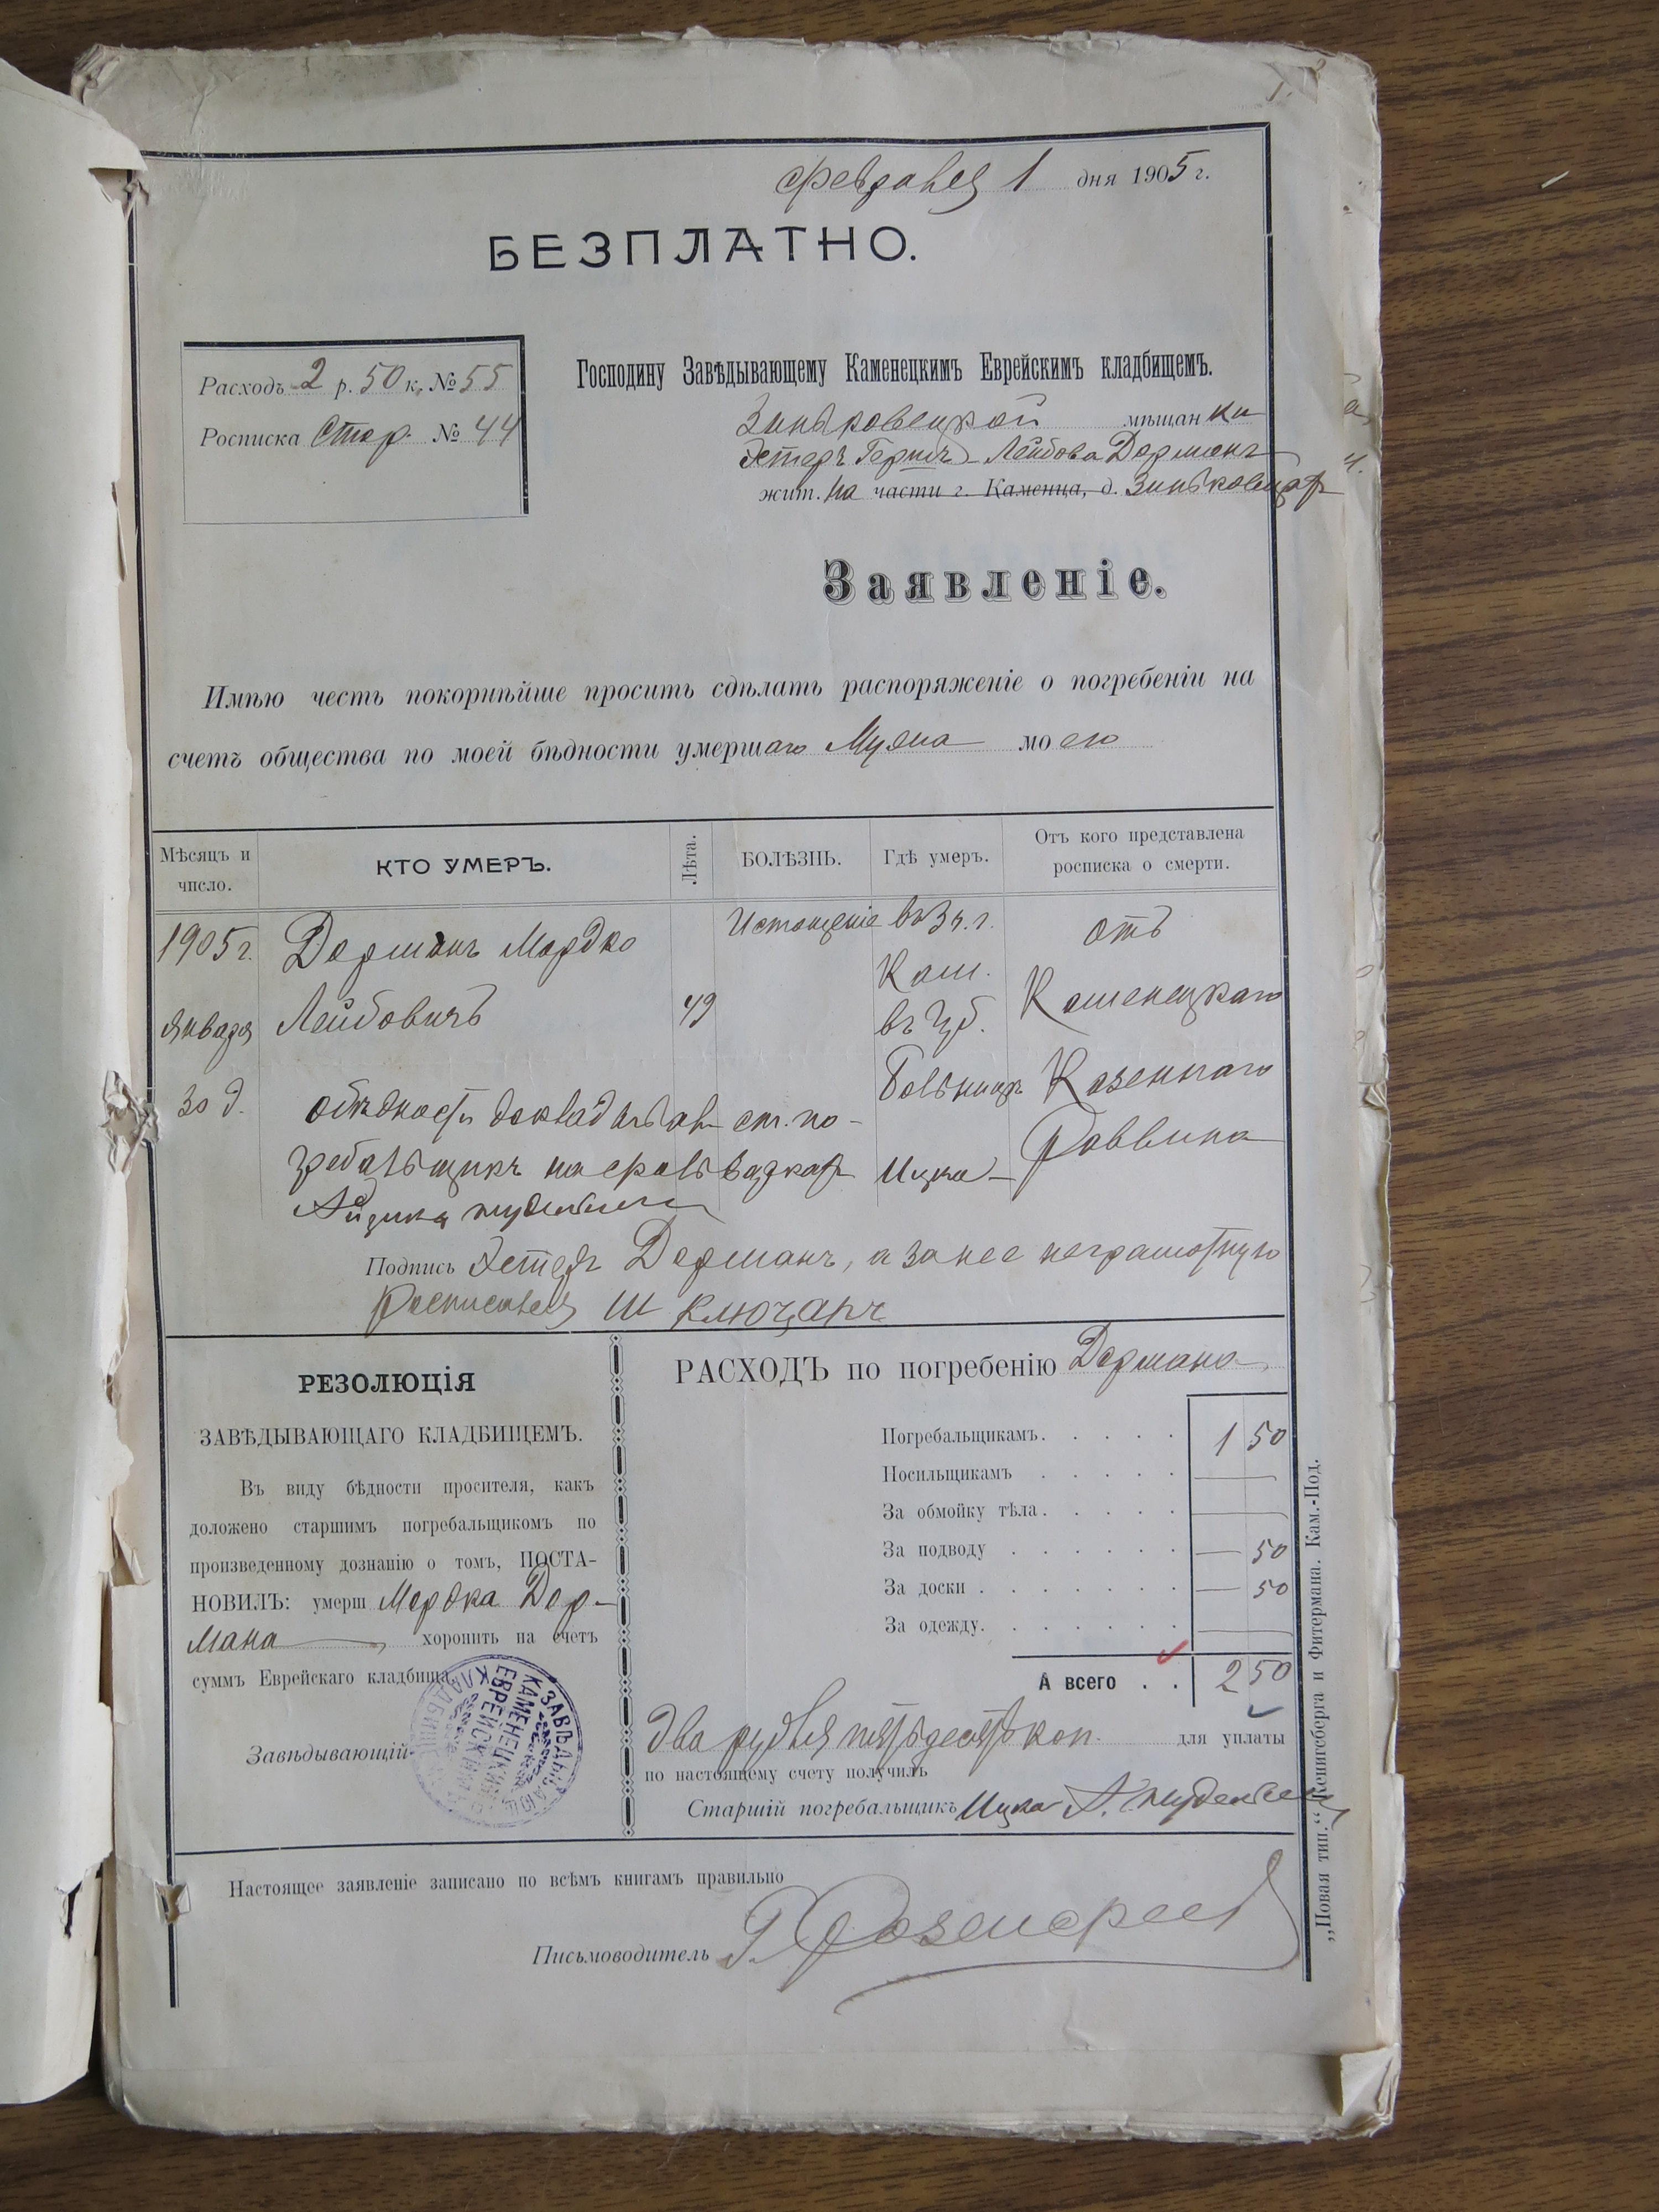 Февраля 1 дня 1905 г.
БЕЗПЛАТНО.
Расходъ 2 р. 50 к. № 55
Росписка Стар. № 44
Господину Завѣдывающему Каменецкимъ Еврейскимъ кладбищемъ.
Зиньковецкой мѣщанки
Эстеръ Гершъ-Лейбова Дорманъ
жит. на части г. Каменца, д. Зиньковцахъ
Заявленіе.
Имѣю честь покорнѣйше просить сдѣлать распоряженіе о погребеніи на
счетъ общества по моей бѣдности умершаго Мужа моего
Мѣсяцъ и число. КТО УМЕРЪ. Лѣта. БОЛѢЗНЬ. Гдѣ умеръ. Отъ кого представлена росписка о смерти.
1905 г. Дорманъ Мордко Истощеніе въ 3 ч. г. отъ
Кам. Каменецкаго
Января Лейбовичъ 49 въ
30 д. Больницѣ Казеннаго
о бѣдности ст. по-
гребальщикъ Ицко Раввина
Айзика
Подпись Эстеръ Дорманъ, а за нее неграмотную
Росписался Ш Ключаръ
РЕЗОЛЮЦІЯ
ЗАВѢДЫВАЮЩАГО КЛАДБИЩЕМЪ.
Въ виду бѣдности просителя, какъ
доложено старшимъ погребальщикомъ по
произведенному дознанію о томъ, ПОСТА-
НОВИЛЪ: умерш Мордка Дор-
мана хоронить на счетъ
суммъ Еврейскаго кладбища.
Завѣдывающій
ЗАВѢДЫВАЮЩ
КАМЕНЕЦК
ЕВРЕЙСКИМЪ
КЛАДБИЩЕМЪ
РАСХОДЪ по погребенію Дормана
Погребальщикамъ. . . . . 1 50
Носильщикамъ . . . . . —
За обмойку тѣла. . . . . —
За подводу . . . . . . — 50
За доски . . . . . . . — 50
За одежду. . . . . . . —
А всего . . 2 50
два рубля пятьдесятъ коп. для уплаты
по настоящему счету получилъ
Старшій погребальщикъ Ицко А.
Настоящее заявленіе записано по всѣмъ книгамъ правильно
Письмоводитель
„Новая тип.“ Кенигсберга и Фитермана. Кам.-Под.